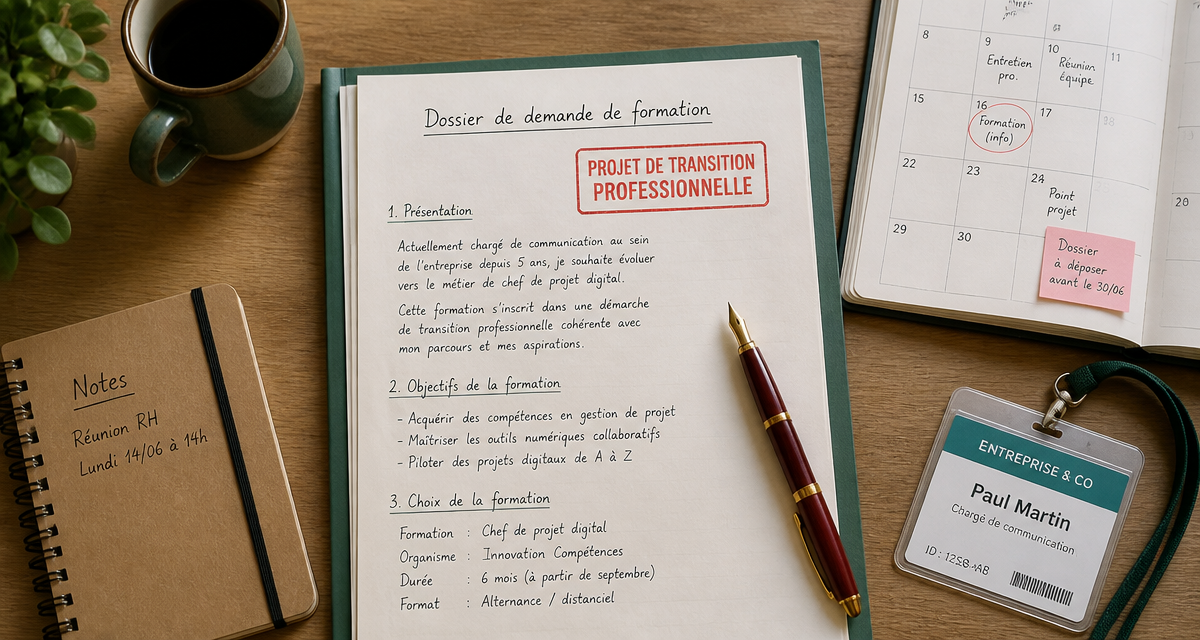 Dossier de demande de formation
PROJET DE TRANSITION
PROFESSIONNELLE
1. Présentation
Actuellement chargé de communication au sein
de l'entreprise depuis 5 ans, je souhaite évoluer
vers le métier de chef de projet digital.
Cette formation s'inscrit dans une démarche
de transition professionnelle cohérente avec
mon parcours et mes aspirations.
2. Objectifs de la formation
- Acquérir des compétences en gestion de projet
- Maîtriser les outils numériques collaboratifs
- Piloter des projets digitaux de A à Z
3. Choix de la formation
Formation : Chef de projet digital
Organisme : Innovation Compétences
Durée : 6 mois (à partir de septembre)
Format : Alternance / distanciel
Notes
Réunion RH
Lundi 14/06 à 14h
8
9
Entretien
pro.
10
Réunion
équipe
11
15
16
Formation
(info)
17
22
23
24
Point
projet
29
30
20
Dossier
à déposer
avant le 30/06
ENTREPRISE & CO
Paul Martin
Chargé de communication
ID :